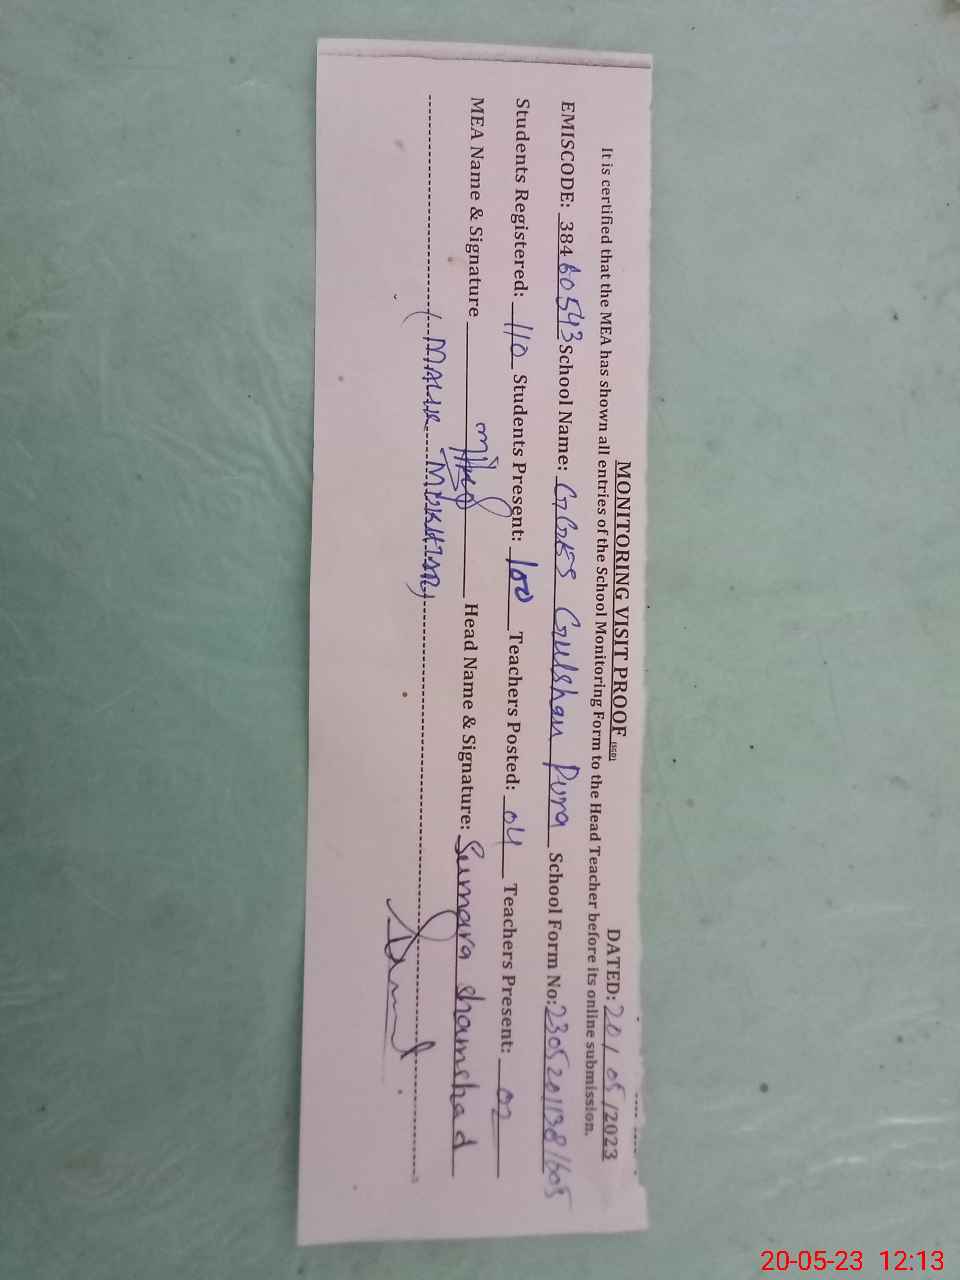 MONITORING VISIT PROOF (SGD) DATED: 20/05/2023
It is certified that the MEA has shown all entries of the School Monitoring Form to the Head Teacher before its online submission.
EMISCODE: 38460543 School Name: GGES Gulshan Pura School Form No: 23052011381605
Students Registered: 110 Students Present: 100 Teachers Posted: 04 Teachers Present: 02
MEA Name & Signature Head Name & Signature: Sumara Shamshad
(MALIK MUKHTAR)
20-05-23 12:13